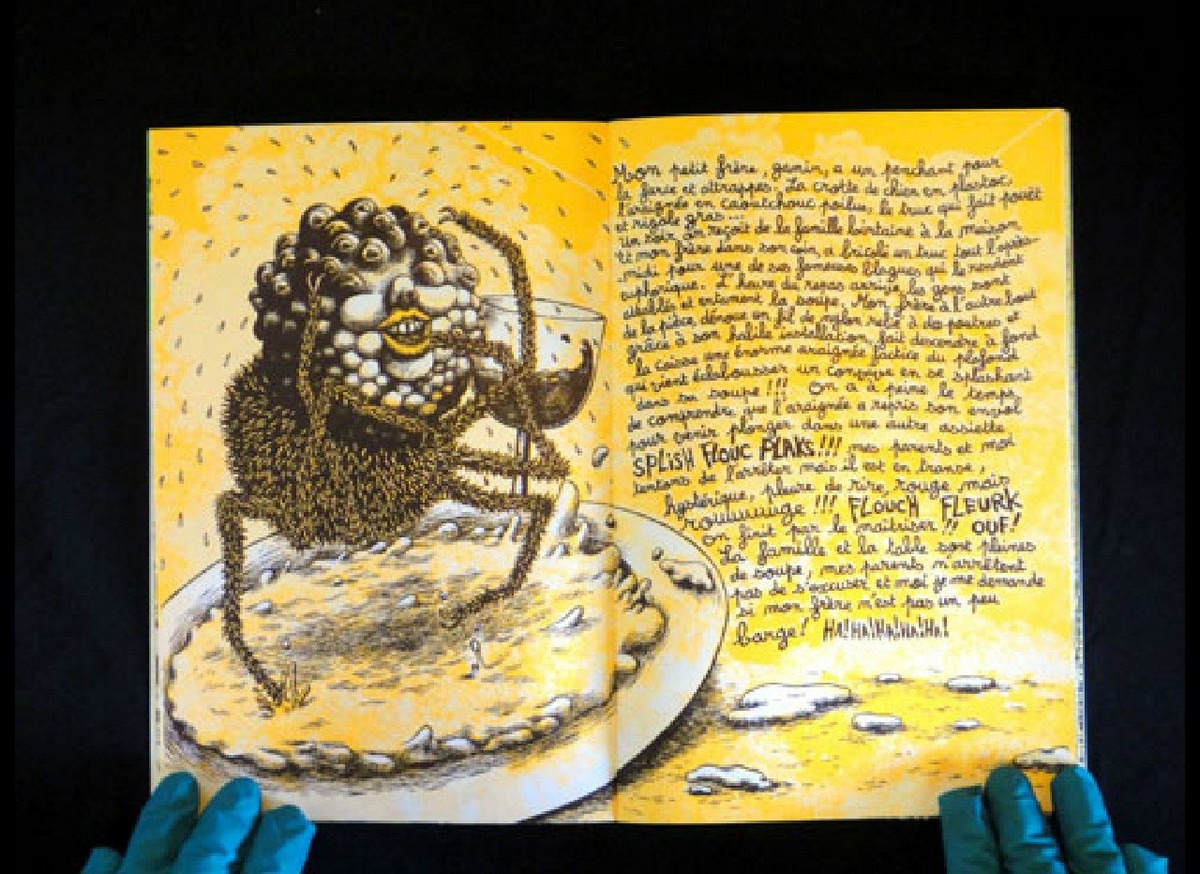 Mon petit frère, gamin, a un penchant pour
la farce et attrappes. La crotte de chien en plastoc,
l'araignée en caoutchouc poilue, le truc qui fait pouêt
et rigole gras...
Un soir, on reçoit de la famille lointaine à la maison
et mon frère dans son coin, a bricolé un truc tout l'après-
midi pour une de ses fameuses blagues qui le rendent
euphorique. L'heure du repas arrive, les gens sont
attablés et entament la soupe. Mon frère à l'autre bout
de la pièce dénoue un fil de nylon relié à des poutres et
grâce à son habile installation, fait descendre à fond
la caisse une énorme araignée factice du plafond
qui vient éclabousser un convive en se splashant
dans sa soupe!!! On a à peine le temps
de comprendre que l'araignée a repris son envol
pour venir plonger dans une autre assiette
SPLISH FLOUC PLAKS!!! mes parents et moi
tentons de l'arrêter mais il est en transe,
hystérique, pleure de rire, rouge mais
rouuuuuge!!! FLOUCH FLEURK
on finit par le maîtriser!! OUF!
La famille et la table sont pleines
de soupe, mes parents n'arrêtent
pas de s'excuser et moi je me demande
si mon frère n'est pas un peu
barge! HA!HA!HA!HA!HA!